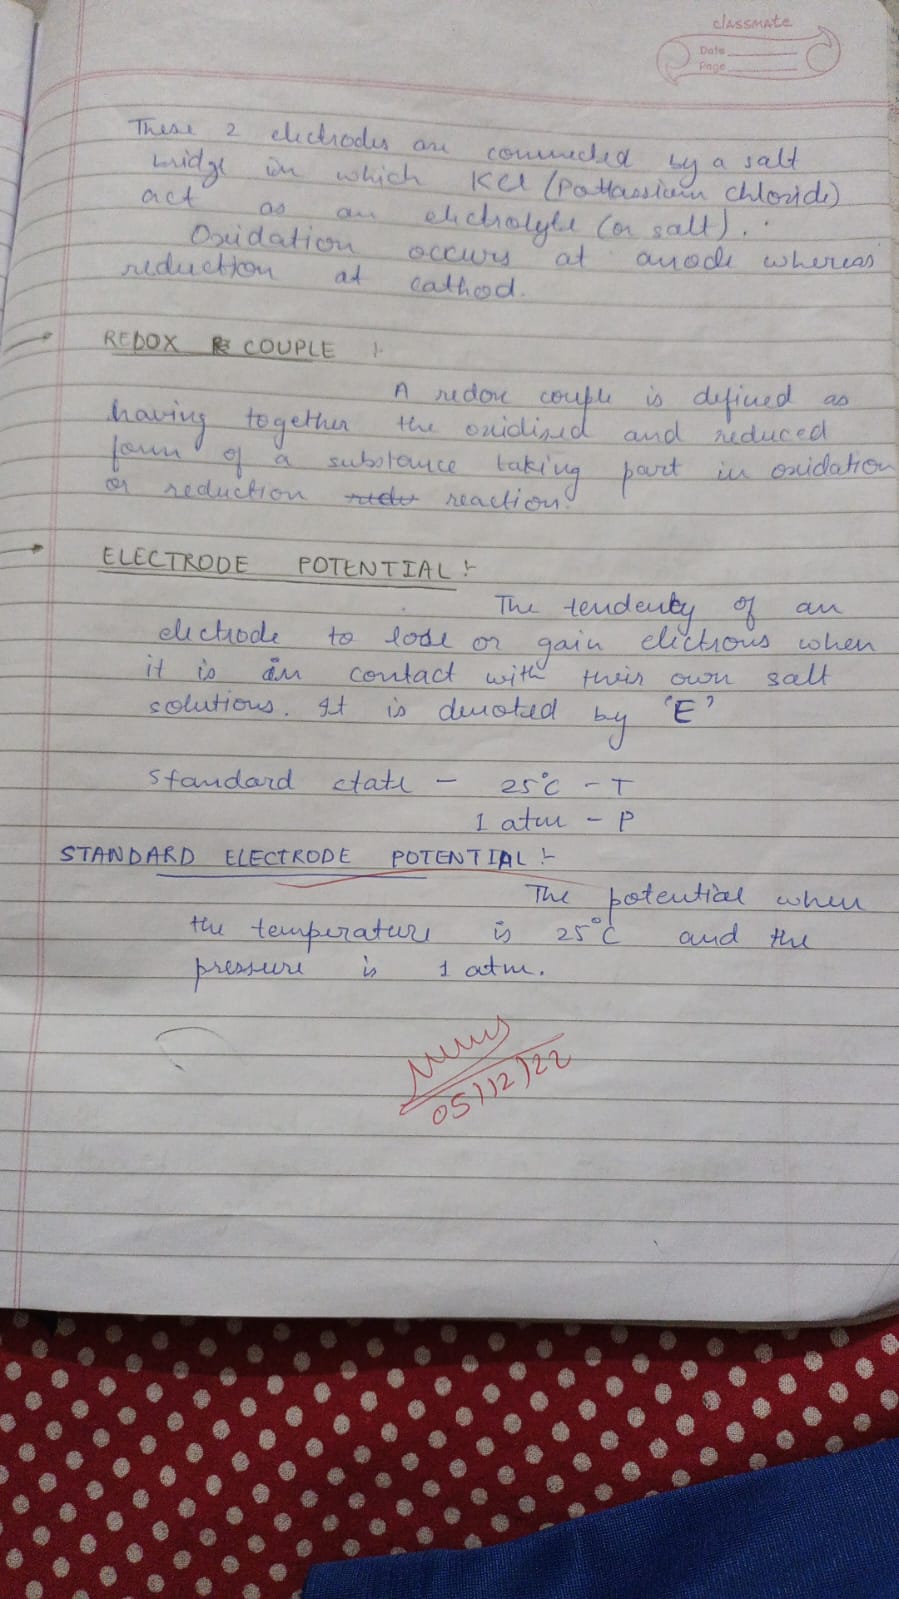 classmate
Date
Page
These 2 electrodes are connected by a salt
bridge in which KCl (Pottassium chloride)
act as an electrolyte (or salt).
Oxidation occurs at anode whereas
reduction at cathod.
REDOX COUPLE :-
A redox couple is defined as
having together the oxidised and reduced
form of a substance taking part in oxidation
or reduction reaction.
ELECTRODE POTENTIAL :-
The tendenty of an
electrode to lose or gain electrons when
it is in contact with their own salt
solutions. It is denoted by 'E'
Standard state - 25°C - T
1 atm - P
STANDARD ELECTRODE POTENTIAL :-
The potential when
the temperature is 25°C and the
pressure is 1 atm.
05/12/22